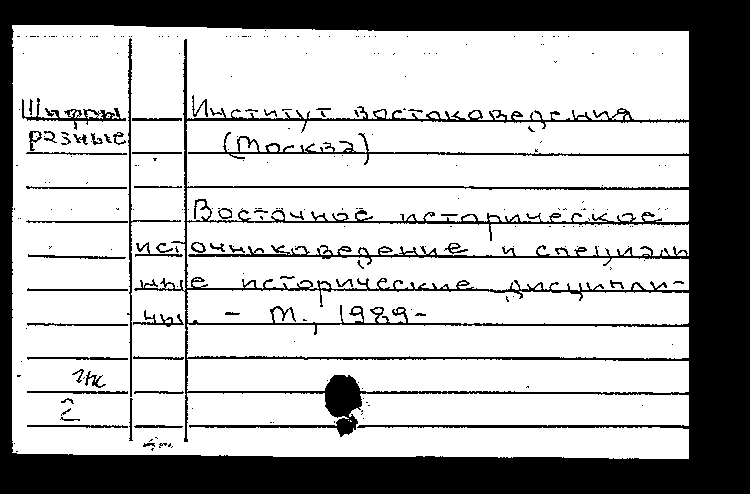 Шифры
разные
Институт востоковедения
(Москва)
Восточное историческое
источниковедение и специаль
ные исторические дисципли-
ны. - М., 1989-
2